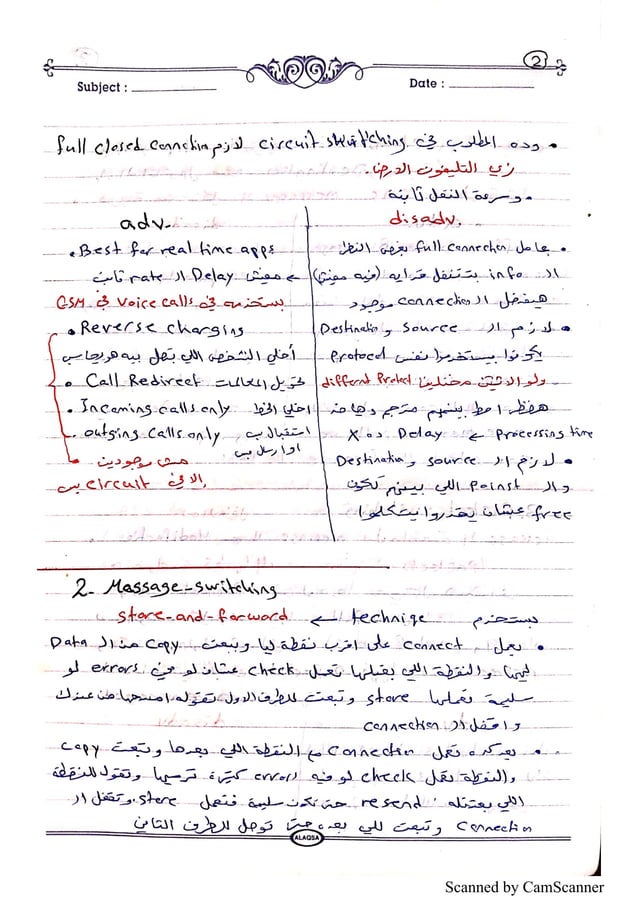 2
Subject :
Date :
• وده المطلوب في circuit switching لازم full closed connection
زي التليفون الارضي.
• وسرعة النقل ثابتة
adv.
• Best for real time apps
← مفيش Delay الـ rate ثابت
بستخدمه في Voice calls في GSM
• Reverse charging
أخلي الشخص اللي بتصل بيه هو يحاسب
• Call Redirect تحويل المكالمات
• Incoming calls only اخلي الخط
• outging calls only استقبال بس
او ارسال بس
مش موجودين
الا في circuit بس
disadv.
• بعامل full connection بغض النظر
الـ info بتتنقل
هيفضل الـ connection موجود
• لازم الـ source و Destination
يكونوا بيستخدموا نفس Protocol
ولو الاثنين مختلفين differnt Protocl
هضطر احط بينهم مترجم وهاخد
Processing time ← Delay ده X
• لازم الـ source و Destination
والـ Poinst اللي بينهم تكون
free عشان يقدروا يتكلموا
2- Massage-switching
بستخدم technige ← store-and-forward
• بعمل connect على اقرب نقطة ليا وببعت copy من الـ Data
ليها والنقطة اللي بعتلها تعمل check عشان لو في errors لو
سليمة تعملها store وتبعت للطرف الاول تقوله امسحها من عندك
واقفل الـ connection
• بعد كده تعمل connection مع النقطة اللي بعدها وتبعت copy
والنقطة تعمل check لو فيه errors كتيرة ترميها وتقول للنقطة
اللي بعتتله resend حتى تكون سليمة فتعمل store وتقفل الـ
connection وتبعت للي بعده حتى توصل للطرف التاني
ALAQSA
Scanned by CamScanner